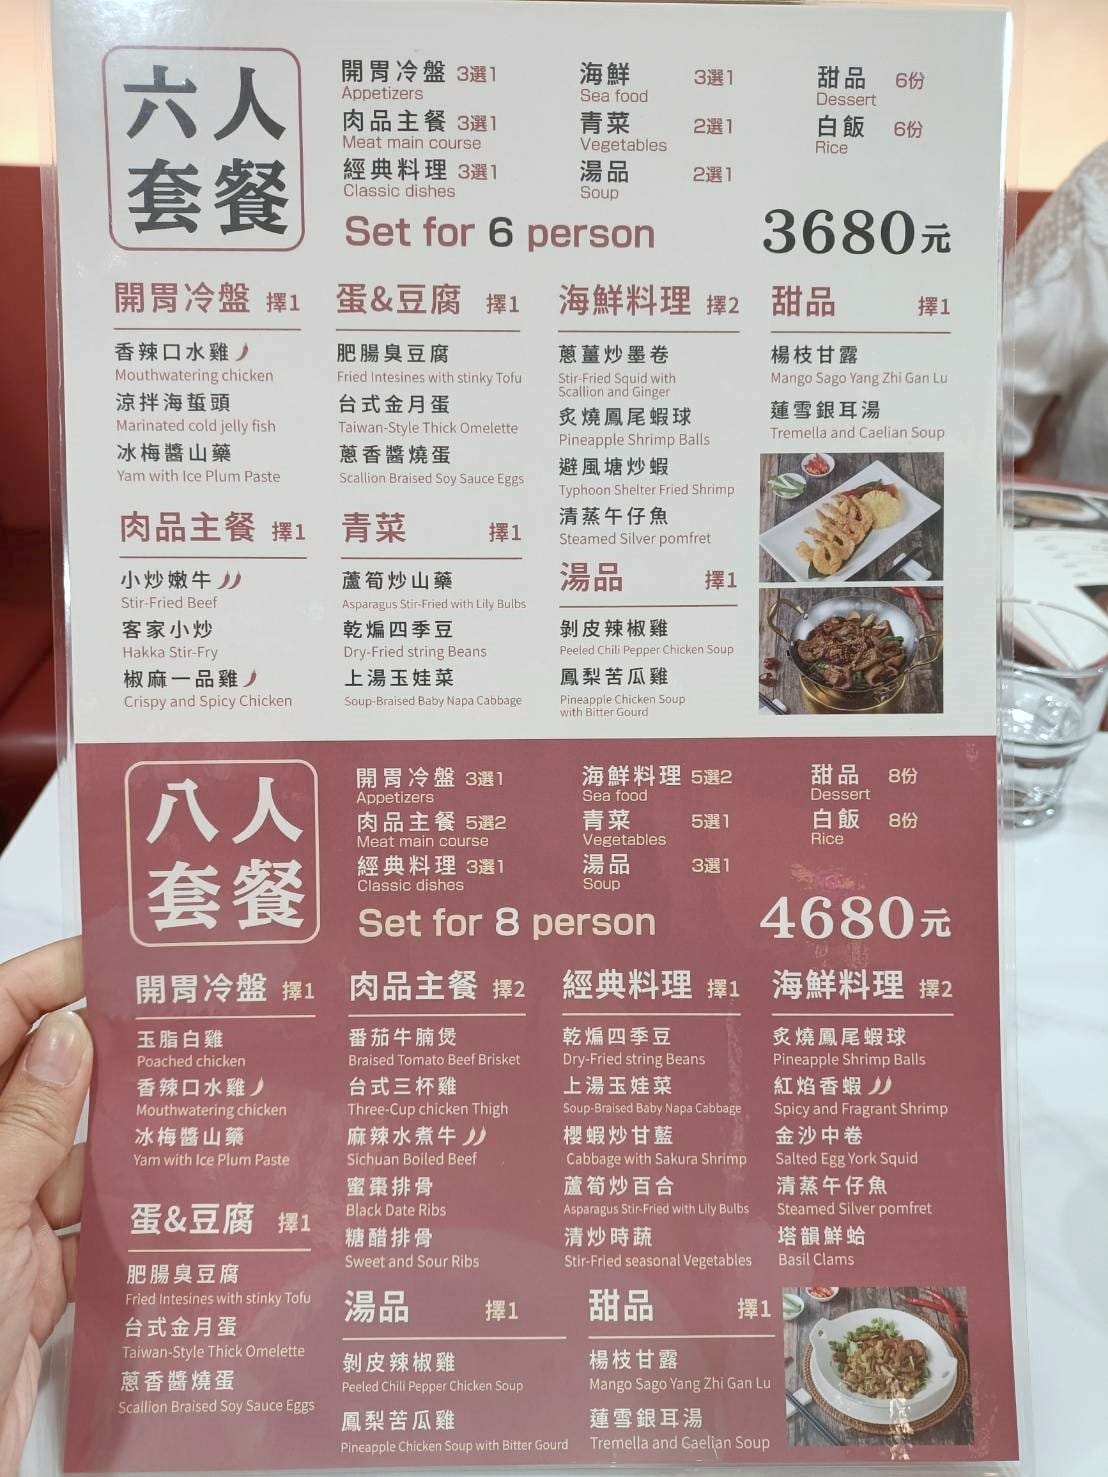 六人
套餐
開胃冷盤 3選1
Appetizers
肉品主餐 3選1
Meat main course
經典料理 3選1
Classic dishes
海鮮 3選1
Sea food
青菜 2選1
Vegetables
湯品 2選1
Soup
甜品 6份
Dessert
白飯 6份
Rice
Set for 6 person
3680元
開胃冷盤 擇1
香辣口水雞
Mouthwatering chicken
涼拌海蜇頭
Marinated cold jelly fish
冰梅醬山藥
Yam with Ice Plum Paste
肉品主餐 擇1
小炒嫩牛
Stir-Fried Beef
客家小炒
Hakka Stir-Fry
椒麻一品雞
Crispy and Spicy Chicken
蛋&豆腐 擇1
肥腸臭豆腐
Fried Intesines with stinky Tofu
台式金月蛋
Taiwan-Style Thick Omelette
蔥香醬燒蛋
Scallion Braised Soy Sauce Eggs
青菜 擇1
蘆筍炒山藥
Asparagus Stir-Fried with Lily Bulbs
乾煸四季豆
Dry-Fried string Beans
上湯玉娃菜
Soup-Braised Baby Napa Cabbage
海鮮料理 擇2
蔥薑炒墨卷
Stir-Fried Squid with
Scallion and Ginger
炙燒鳳尾蝦球
Pineapple Shrimp Balls
避風塘炒蝦
Typhoon Shelter Fried Shrimp
清蒸午仔魚
Steamed Silver pomfret
湯品 擇1
剝皮辣椒雞
Peeled Chili Pepper Chicken Soup
鳳梨苦瓜雞
Pineapple Chicken Soup
with Bitter Gourd
甜品 擇1
楊枝甘露
Mango Sago Yang Zhi Gan Lu
蓮雪銀耳湯
Tremella and Caelian Soup
八人
套餐
開胃冷盤 3選1
Appetizers
肉品主餐 5選2
Meat main course
經典料理 3選1
Classic dishes
海鮮料理 5選2
Sea food
青菜 5選1
Vegetables
湯品 3選1
Soup
甜品 8份
Dessert
白飯 8份
Rice
Set for 8 person
4680元
開胃冷盤 擇1
玉脂白雞
Poached chicken
香辣口水雞
Mouthwatering chicken
冰梅醬山藥
Yam with Ice Plum Paste
蛋&豆腐 擇1
肥腸臭豆腐
Fried Intesines with stinky Tofu
台式金月蛋
Taiwan-Style Thick Omelette
蔥香醬燒蛋
Scallion Braised Soy Sauce Eggs
肉品主餐 擇2
番茄牛腩煲
Braised Tomato Beef Brisket
台式三杯雞
Three-Cup chicken Thigh
麻辣水煮牛
Sichuan Boiled Beef
蜜棗排骨
Black Date Ribs
糖醋排骨
Sweet and Sour Ribs
湯品 擇1
剝皮辣椒雞
Peeled Chili Pepper Chicken Soup
鳳梨苦瓜雞
Pineapple Chicken Soup with Bitter Gourd
經典料理 擇1
乾煸四季豆
Dry-Fried string Beans
上湯玉娃菜
Soup-Braised Baby Napa Cabbage
櫻蝦炒甘藍
Cabbage with Sakura Shrimp
蘆筍炒百合
Asparagus Stir-Fried with Lily Bulbs
清炒時蔬
Stir-Fried seasonal Vegetables
甜品 擇1
楊枝甘露
Mango Sago Yang Zhi Gan Lu
蓮雪銀耳湯
Tremella and Caelian Soup
海鮮料理 擇2
炙燒鳳尾蝦球
Pineapple Shrimp Balls
紅焰香蝦
Spicy and Fragrant Shrimp
金沙中卷
Salted Egg York Squid
清蒸午仔魚
Steamed Silver pomfret
塔韻鮮蛤
Basil Clams